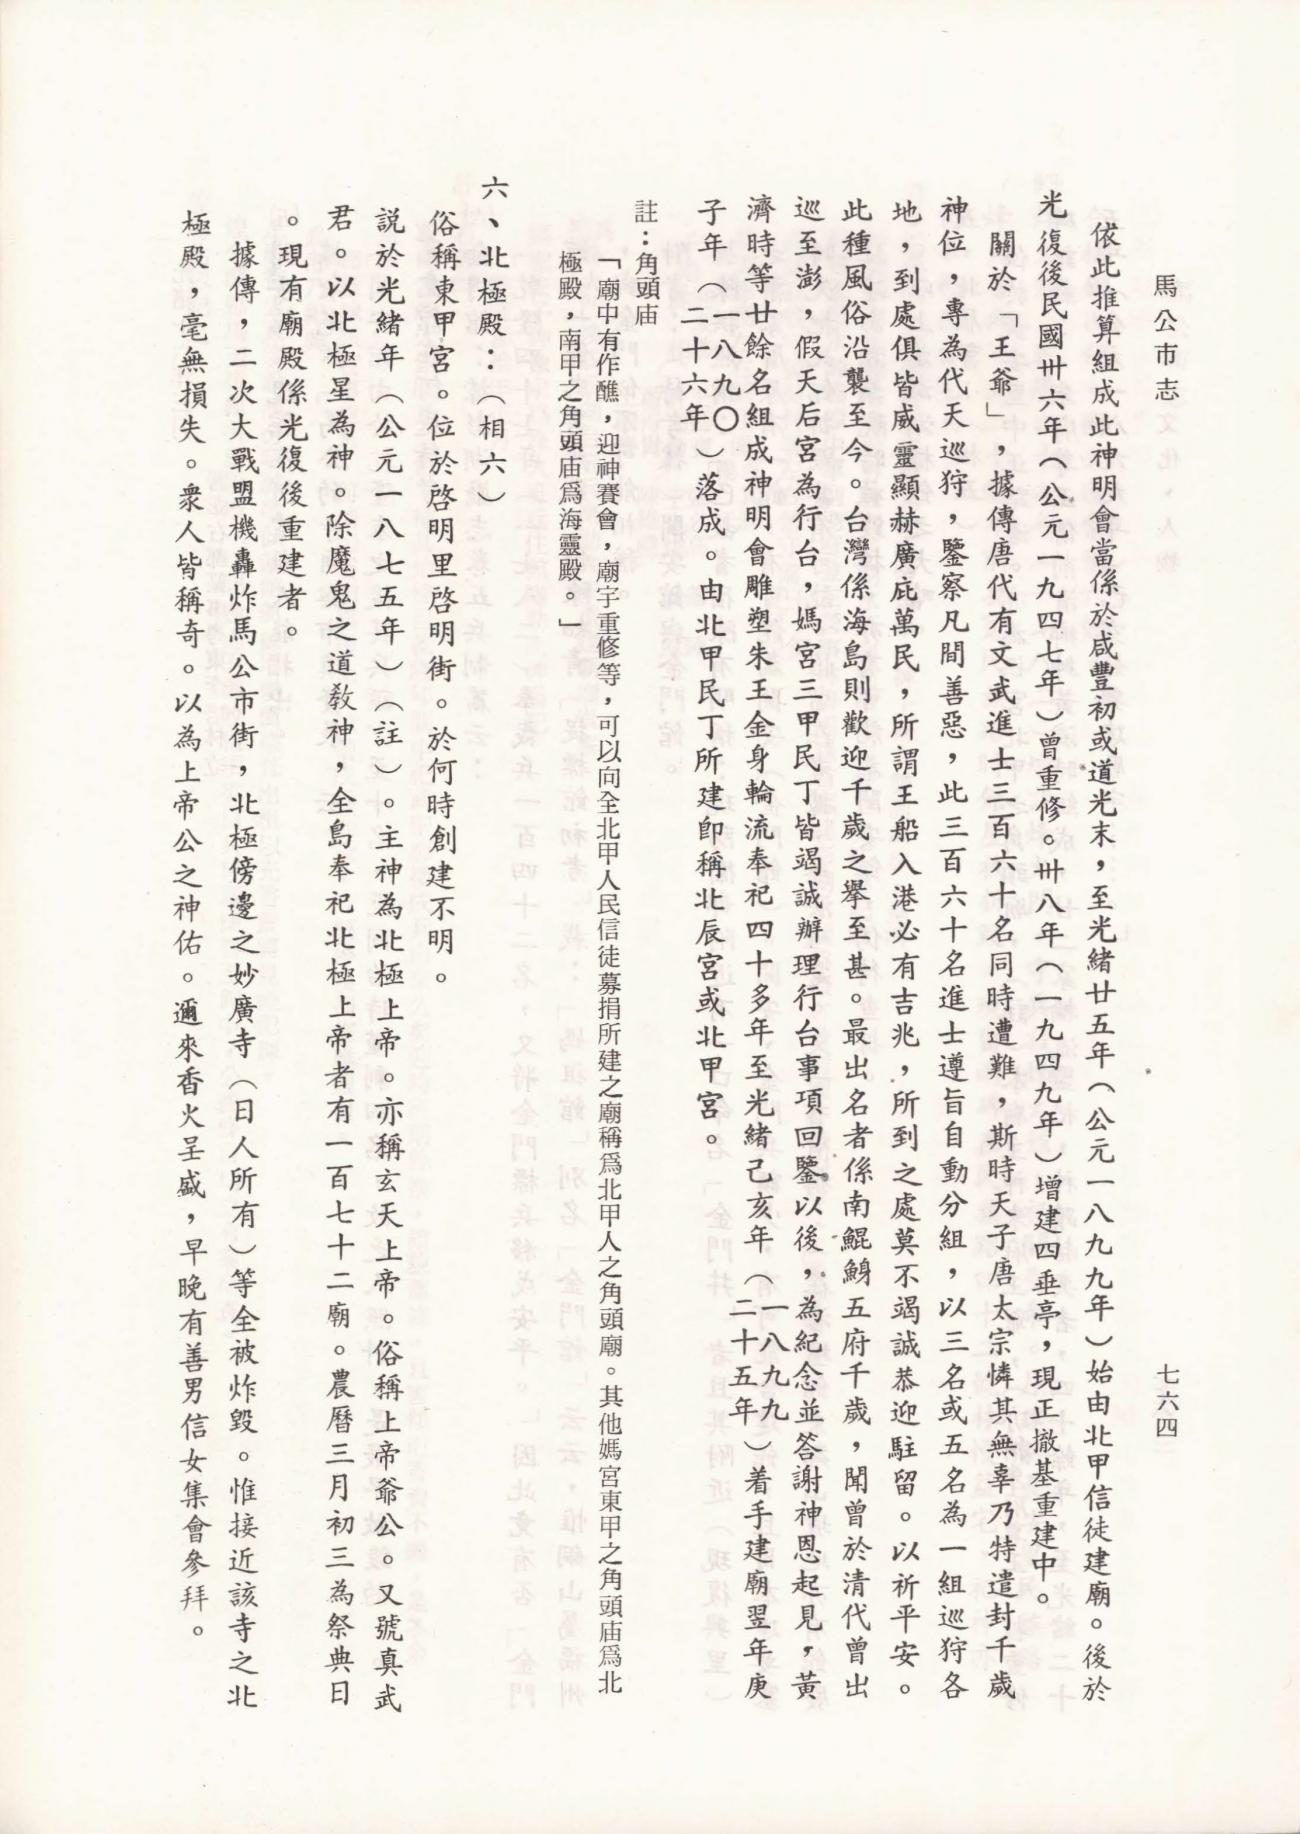 馬公市志
七六四
依此推算組成此神明會當係於咸豐初或道光末，至光緒廿五年（公元一八九九年）始由北甲信徒建廟。後於
光復後民國卅六年（公元一九四七年）曾重修。卅八年（一九四九年）增建四垂亭，現正撤基重建中。
關於「王爺」，據傳唐代有文武進士三百六十名同時遭難，斯時天子唐太宗憐其無辜乃特遣封千歲
神位，專為代天巡狩，鑒察凡間善惡，此三百六十名進士遵旨自動分組，以三名或五名為一組巡狩各
地，到處俱皆威靈顯赫廣庇萬民，所謂王船入港必有吉兆，所到之處莫不竭誠恭迎駐留。以祈平安。
此種風俗沿襲至今。台灣係海島則歡迎千歲之擧至甚。最出名者係南鯤鯓五府千歲，聞曾於清代曾出
巡至澎，假天后宮為行台，媽宮三甲民丁皆竭誠辦理行台事項回鑒以後，為紀念並答謝神恩起見，黃
濟時等廿餘名組成神明會雕塑朱王金身輪流奉祀四十多年至光緒己亥年（一八九九二十五年）着手建廟翌年庚
子年（一八九〇二十六年）落成。由北甲民丁所建卽稱北辰宮或北甲宮。
註：角頭庙
「廟中有作醮，迎神賽會，廟宇重修等，可以向全北甲人民信徒募捐所建之廟稱爲北甲人之角頭廟。其他媽宮東甲之角頭庙爲北
極殿，南甲之角頭庙爲海靈殿。」
六、北極殿：（相六）
俗稱東甲宮。位於啓明里啓明街。於何時創建不明。
説於光緒年（公元一八七五年）（註）。主神為北極上帝。亦稱玄天上帝。俗稱上帝爺公。又號真武
君。以北極星為神。除魔鬼之道敎神，全島奉祀北極上帝者有一百七十二廟。農曆三月初三為祭典日
。現有廟殿係光復後重建者。
據傳，二次大戰盟機轟炸馬公市街，北極傍邊之妙廣寺（日人所有）等全被炸毀。惟接近該寺之北
極殿，毫無損失。衆人皆稱奇。以為上帝公之神佑。邇來香火呈盛，早晚有善男信女集會參拜。